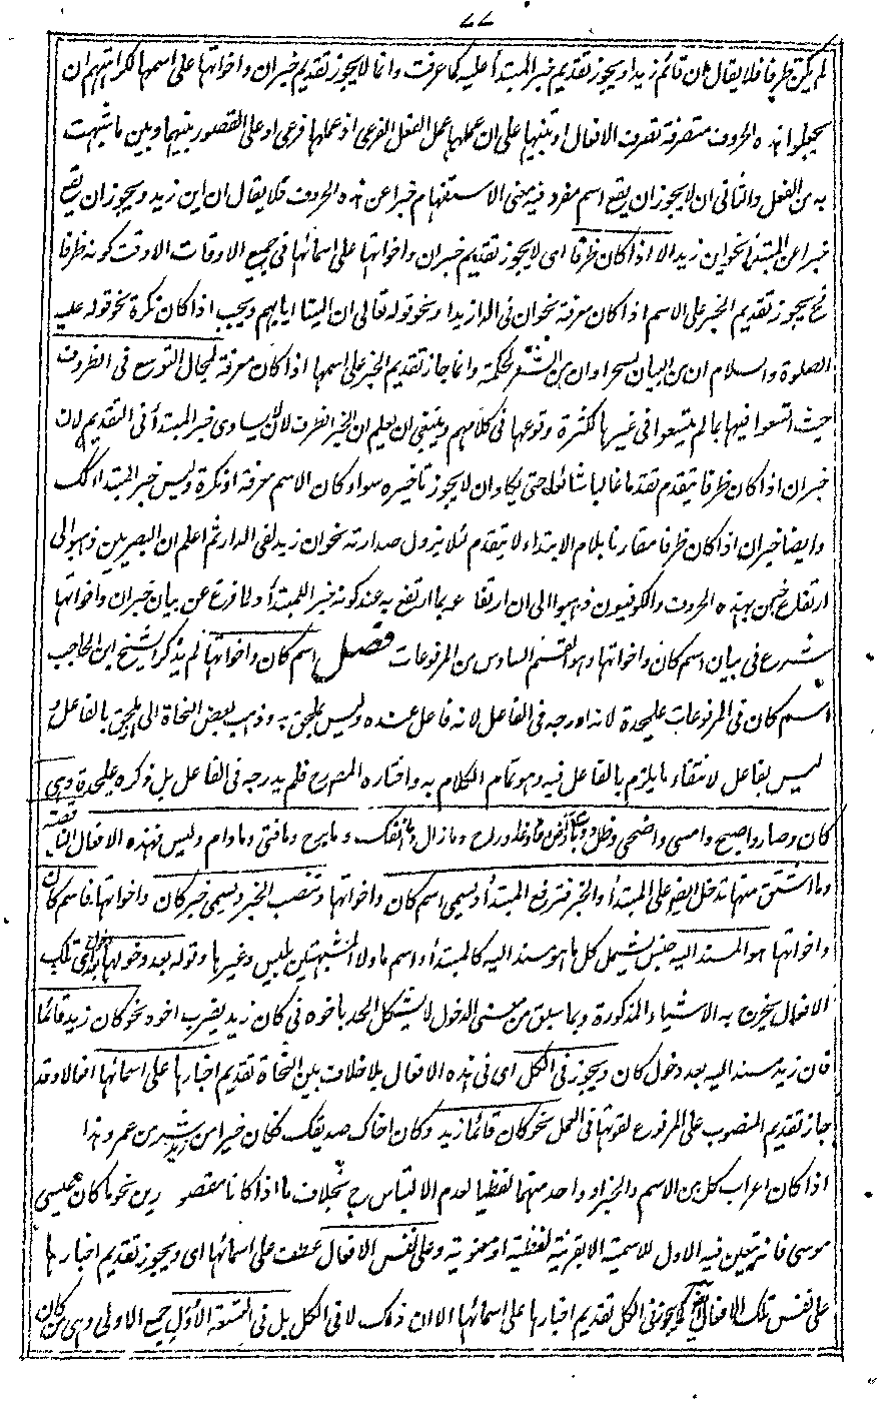 ٧٧
لم يكن ظرفا فلا يقال ان قائم زيدا ويجوز تقديم خبر المبتدأ عليه كما عرفت وانما لا يجوز تقديم خبر ان واخواتها على اسمها لكراهتهم ان
يجعلوا هذه الحروف متصرفة تصرف الافعال او تنبيها على ان عملها عمل الفعل الفرعى اذ عملها فرعى او على القصور بينهما وبين ما شبهت
به من الفعل والثانى ان لا يجوز ان يقع اسم مفرد فيه معنى الاستفهام خبرا عن هذه الحروف فلا يقال ان اين زيد ويجوز ان يقع
خبرا عن المبتدأ نحو اين زيد الا اذا كان ظرفا اى لا يجوز تقديم خبر ان واخواتها على اسمائها فى جميع الاوقات الا وقت كونه ظرفا
فح يجوز تقديم الخبر على الاسم اذا كان معرفة نحو ان فى الدار زيدا ونحو قوله تعالى ان الينا ايابهم ويجب اذا كان نكرة نحو قوله عليه
الصلوة والسلام ان من البيان لسحرا وان من الشعر لحكمة وانما جاز تقديم الخبر على اسمها اذا كان معرفة لمجال التوسع فى الظروف
حيث اتسعوا فيها بما لم يتسعوا فى غيرها لكثرة وقوعها فى كلامهم وينبغى ان يعلم ان الخبر الظرف لان لا يساوى خبر المبتدأ فى التقديم لان
خبر ان اذا كان ظرفا يتقدم تقدما غالبا شائعا حتى يكاد ان لا يجوز تأخيره سواء كان الاسم معرفة او نكرة وليس خبر المبتدأ كك
وايضا خبر ان اذا كان ظرفا مقارنا بلام الابتداء لا يتقدم لئلا يزول صدارته نحو ان زيد لفى الدار ثم اعلم ان البصريين ذهبوا الى
ارتفاع خبرهن بهذه الحروف والكوفيون ذهبوا الى ان ارتفاعه بما ارتفع به عند كونه خبر المبتدأ ولما فرغ عن بيان خبر ان واخواتها
شرع فى بيان اسم كان واخواتها وهو القسم السادس من المرفوعات فصل اسم كان واخواتها لم يذكر الشيخ ابن الحاجب
اسم كان فى المرفوعات عليحدة لانه ادرجه فى الفاعل لانه فاعل عنده وليس بملحق به وذهب بعض النحاة الى انه ملحق بالفاعل و
ليس بفاعل لانتفاء ما يلزم بالفاعل فيه وهو تمام الكلام به واختاره المصرح فلم يدرجه فى الفاعل بل ذكره عليحدة وهى
كان وصار واصبح وامسى واضحى وظل وبات وآض وعاد وغدا وراح وما زال وما انفك وما برح وما فتئ وما دام وليس فهذه الافعال الناقصة
وما اشتق منها تدخل ايضا على المبتدأ والخبر فترفع المبتدأ ويسمى اسم كان واخواتها وتنصب الخبر ويسمى خبر كان واخواتها فاسم كان
واخواتها هو المسند اليه جنس يشمل كل ما هو مسند اليه كالمبتدأ واسم ما ولا المشبهتين بليس وغيرها وقوله بعد دخولها اى دخول تلك
الافعال يخرج به الاشياء المذكورة وبما سبق من معنى الدخول لا يشكل الحد باخوه فى كان زيد يضرب اخوه نحو كان زيد قائما
فان زيد مسند اليه بعد دخول كان ويجوز فى الكل اى فى هذه الافعال بلا خلاف بين النحاة تقديم اخبارها على اسمائها افعالا وقد
جاز تقديم المنصوب على المرفوع لقوتها فى العمل نحو كان قائما زيد وكان اخاك صديقك فكان خيرا من زيد شر من عمرو هذا
اذا كان اعراب كل من الاسم والخبر او واحد منهما لفظيا لعدم الالتباس ح بخلاف ما اذا كانا مقصورين نحو ما كان عيسى
موسى فانه يتعين فيه الاول للاسمية الا بقرينة لفظية او معنوية وعلى نفس الافعال عطف على اسمائها اى ويجوز تقديم اخبارها
على نفس تلك الافعال كما يجوز فى الكل تقديم اخبارها على اسمائها الا ان ذلك لا فى الكل بل فى التسعة الاول جمع الاولى وهى من كان